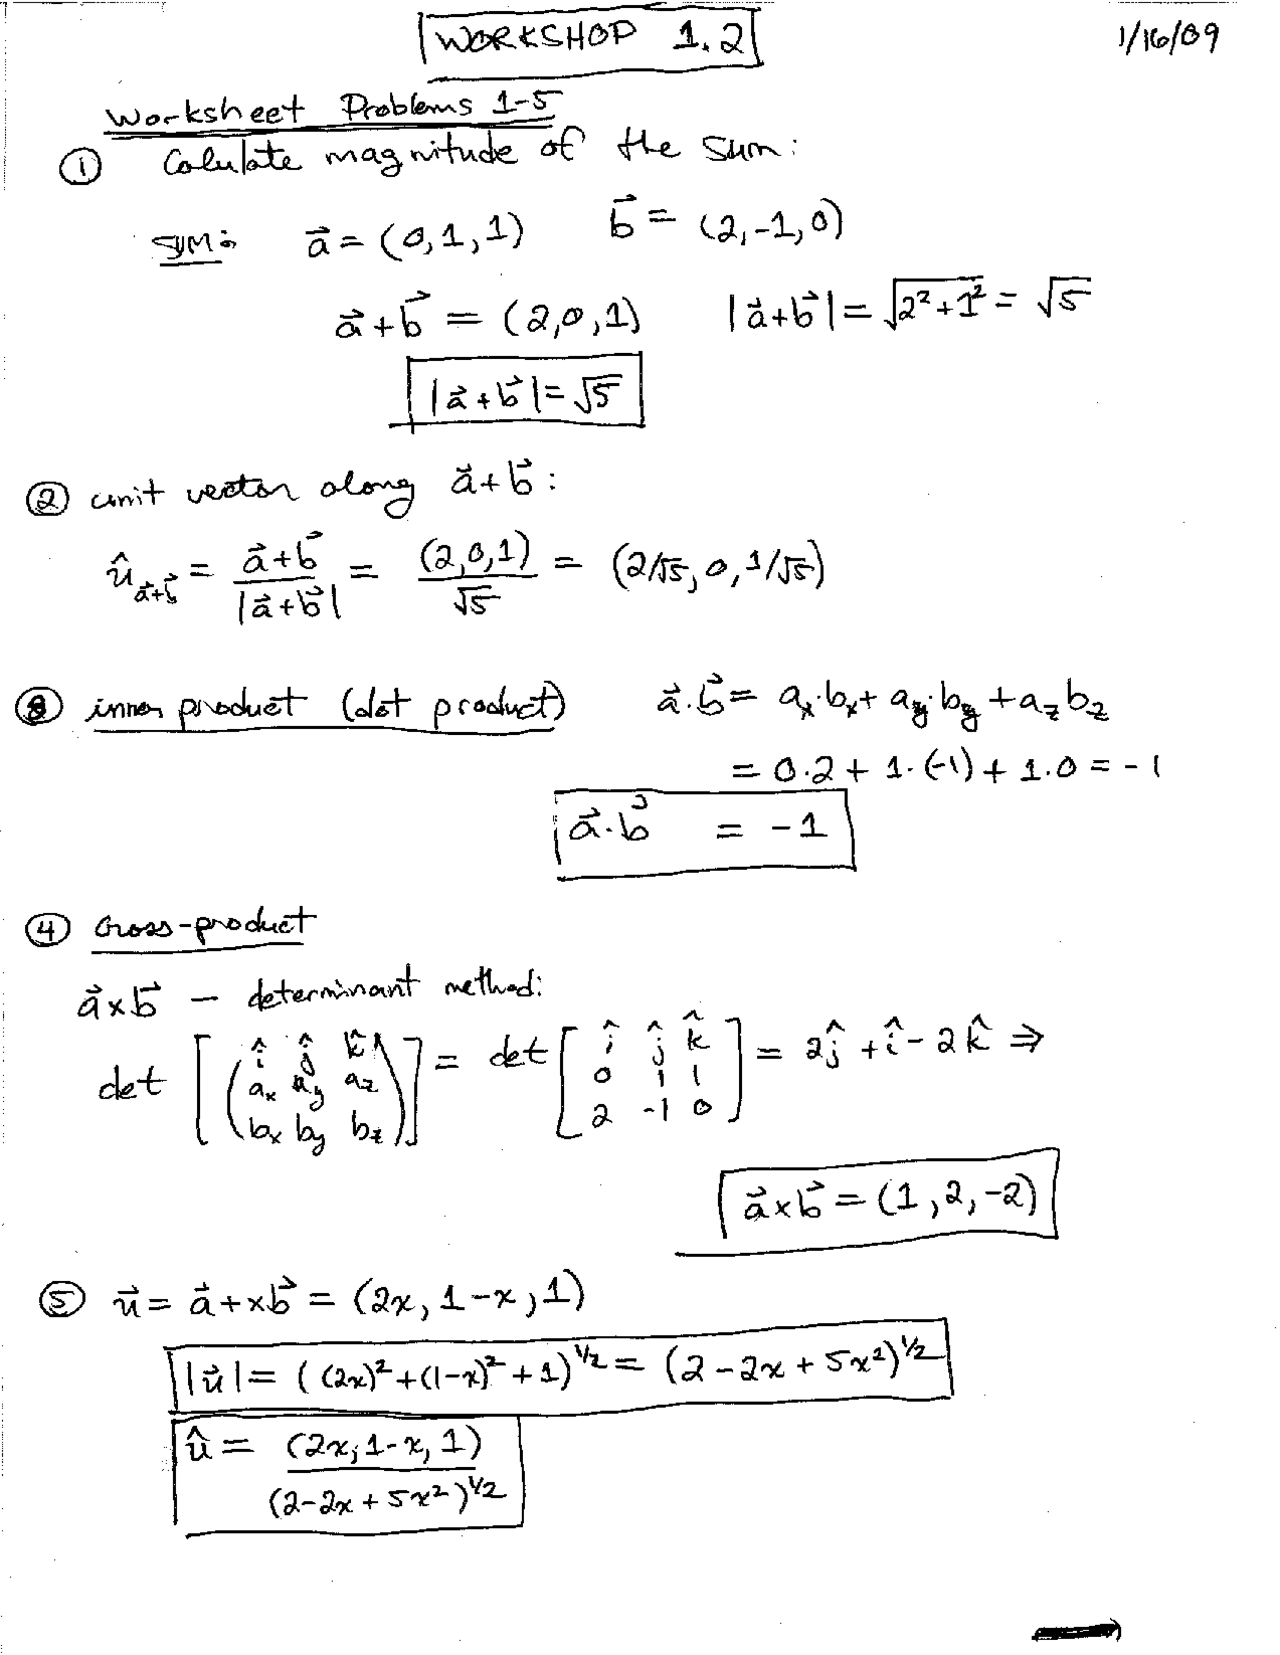 WORKSHOP 1.2
1/16/09
Worksheet Problems 1-5
① Calulate magnitude of the sum:
SUM: a⃗ = (0,1,1) b⃗ = (2,-1,0)
a⃗+b⃗ = (2,0,1) |a⃗+b⃗| = √(2²+1²) = √5
|a⃗+b⃗| = √5
② unit vector along a⃗+b⃗:
û_{a⃗+b⃗} = (a⃗+b⃗)/|a⃗+b⃗| = (2,0,1)/√5 = (2/√5, 0, 1/√5)
③ inner product (dot product) a⃗·b⃗ = aₓ·bₓ + a_y·b_y + a_z b_z
= 0·2 + 1·(-1) + 1·0 = -1
a⃗·b⃗ = -1
④ cross-product
a⃗×b⃗ – determinant method:
det [( î ĵ k̂ ; aₓ a_y a_z ; bₓ b_y b_z )] = det [ î ĵ k̂ ; 0 1 1 ; 2 -1 0 ] = 2ĵ + î - 2k̂ ⇒
a⃗×b⃗ = (1, 2, -2)
⑤ u⃗ = a⃗ + xb⃗ = (2x, 1-x, 1)
|u⃗| = ((2x)² + (1-x)² + 1)^{1/2} = (2-2x+5x²)^{1/2}
û = (2x, 1-x, 1)/(2-2x+5x²)^{1/2}